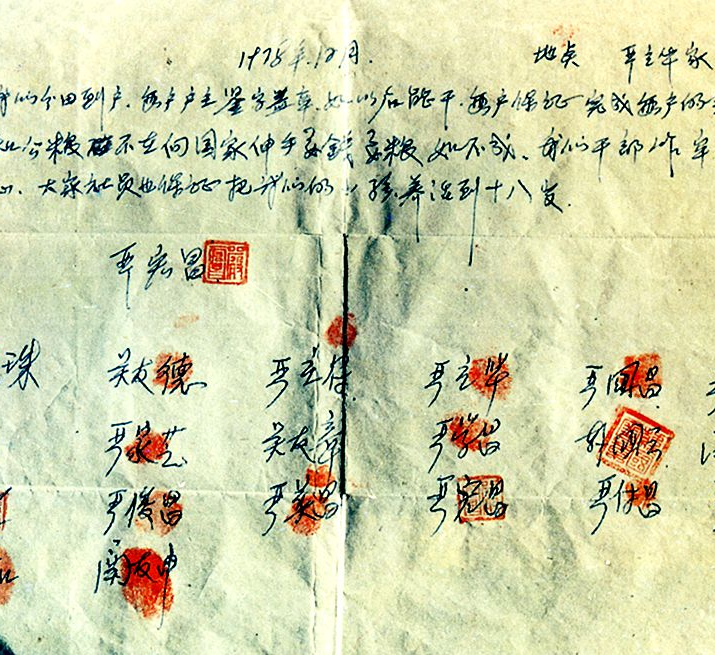 1978年12月. 地点 严立华家
我们分田到户.每户户主签字盖章.如以后能干.每户保证完成每户的
公粮 不在向国家伸手要钱要粮 如不成.我们干部作牢
心.大家社员也保证把我们的小孩养活到十八岁.
严宏昌
珠 关友德 严立符 严立华 严国昌
严家芝 关友章 严学昌 韩国云
严俊昌 严美昌 严宏昌 严付昌
关友申